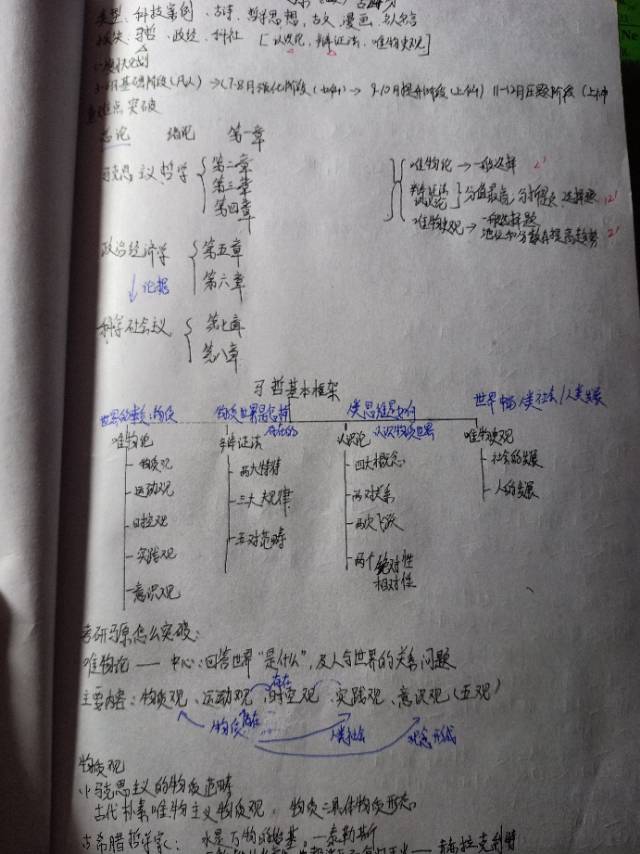 类型、科技案例、古诗、哲学思想、古文、漫画、名人名言
马哲、政经、科社 [认识论、辩证法、唯物史观]
基础阶段 → 7-8月强化阶段 → 9-10月提升阶段 11-12月压题阶段
重难点突破
总论 绪论 第一章
马克思主义哲学 { 第二章 第三章 第四章
唯物论 → 一般选择 2'
辩证法 认识论 } 分值最高 分析题 选择题 12'
唯物史观 → 一般选择题 分数有提高趋势 2'
政治经济学 { 第五章 第六章
↓ 论据
科学社会主义 { 第七章 第八章
马哲基本框架
世界的本质:物质
唯物论
物质观
运动观
时空观
实践观
意识观
物质世界是怎样存在的
辩证法
两大特征
三大规律
五对范畴
人类思维是如何认识物质世界
认识论
四大概念
两对关系
两次飞跃
两个绝对性 相对性
世界中 人类社会/人类发展
唯物史观
社会的发展
人的发展
考研马原怎么突破:
唯物论 —— 中心:回答世界“是什么”,及人与世界的关系问题
主要内容:物质观、运动观、时空观、实践观、意识观(五观)
存在
物质 存在 人类社会 观念形成
物质观
(1)马克思主义的物质范畴
古代朴素唯物主义物质观, 物质=具体物质形态。
古希腊哲学家: 水是万物的始基。—泰勒斯
—— 赫拉克利特